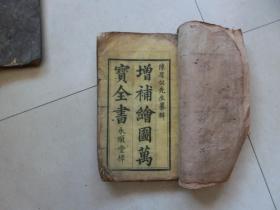 陳眉公先生纂輯
增補繪圖萬
寶全書
永順堂梓